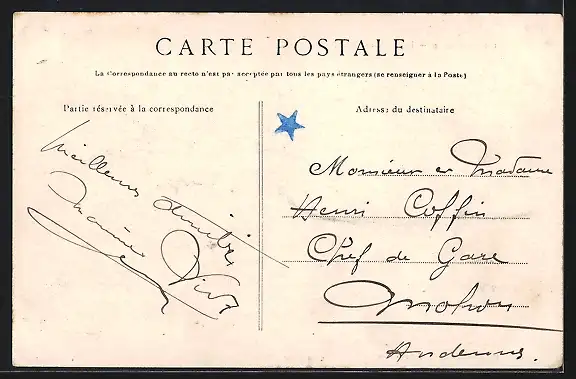 CARTE POSTALE
La Correspondance au recto n'est pas acceptée par tous les pays étrangers (se renseigner à la Poste)
Partie réservée à la correspondance
Adresse du destinataire
Meilleures amitiés
Monsieur et Madame
Henri Coffin
Chef de Gare
Mohon
Ardennes.